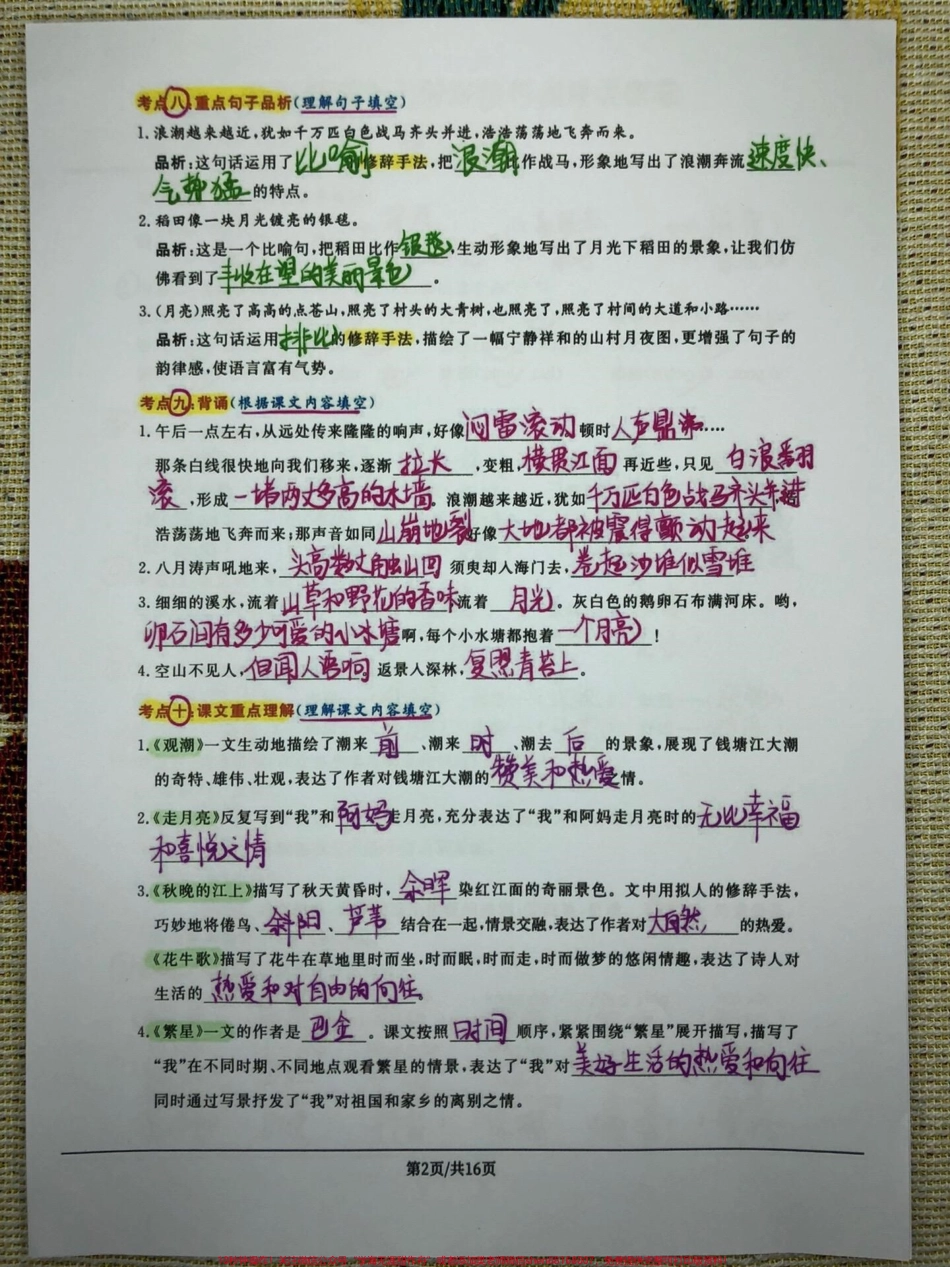 考点八:重点句子品析(理解句子填空)
1.浪潮越来越近,犹如千万匹白色战马齐头并进,浩浩荡荡地飞奔而来。
品析:这句话运用了比喻修辞手法,把浪潮比作战马,形象地写出了浪潮奔流速度快、
气势猛的特点。
2.稻田像一块月光镀亮的银毯。
品析:这是一个比喻句,把稻田比作银毯,生动形象地写出了月光下稻田的景象,让我们仿
佛看到了丰收在望的美丽景色。
3.(月亮)照亮了高高的点苍山,照亮了村头的大青树,也照亮了,照亮了村间的大道和小路……
品析:这句话运用排比的修辞手法,描绘了一幅宁静祥和的山村月夜图,更增强了句子的
韵律感,使语言富有气势。
考点九:背诵(根据课文内容填空)
1.午后一点左右,从远处传来隆隆的响声,好像闷雷滚动 顿时人声鼎沸……
那条白线很快地向我们移来,逐渐拉长,变粗,横贯江面 再近些,只见白浪翻
滚,形成一堵两丈多高的水墙。浪潮越来越近,犹如千万匹白色战马齐头并进
浩荡荡地飞奔而来;那声音如同山崩地裂好像大地都被震得颤动起来
2.八月涛声吼地来,头高数丈触山回 须臾却入海门去,卷起沙堆似雪堆
3.细细的溪水,流着山草和野花的香味流着月光。灰白色的鹅卵石布满河床。哟,
卵石间有多少可爱的小水塘啊,每个小水塘都抱着一个月亮!
4.空山不见人,但闻人语响 返景入深林,复照青苔上。
考点十:课文重点理解(理解课文内容填空)
1.《观潮》一文生动地描绘了潮来前、潮来时、潮去后的景象,展现了钱塘江大潮
的奇特、雄伟、壮观,表达了作者对钱塘江大潮的赞美和热爱情。
2.《走月亮》反复写到“我”和阿妈走月亮,充分表达了“我”和阿妈走月亮时的无比幸福
和喜悦之情
3.《秋晚的江上》描写了秋天黄昏时,余晖染红江面的奇丽景色。文中用拟人的修辞手法,
巧妙地将倦鸟、斜阳、芦苇结合在一起,情景交融,表达了作者对大自然的热爱。
《花牛歌》描写了花牛在草地里时而坐,时而眠,时而走,时而做梦的悠闲情趣,表达了诗人对
生活的热爱和对自由的向往。
4.《繁星》一文的作者是巴金。课文按照时间顺序,紧紧围绕“繁星”展开描写,描写了
“我”在不同时期、不同地点观看繁星的情景,表达了“我”对美好生活的热爱和向往
同时通过写景抒发了“我”对祖国和家乡的离别之情。
第2页/共16页